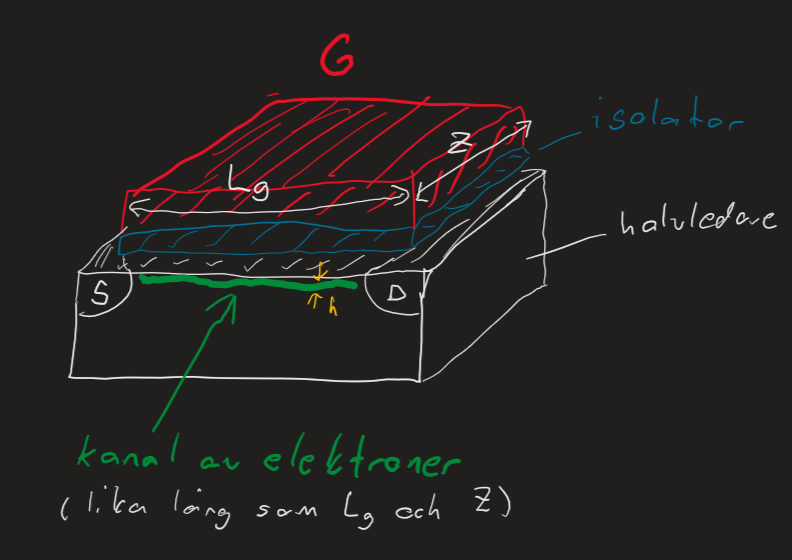 G
isolator
Z
Lg
halvledare
S
D
h
kanal av elektroner
(lika lång som Lg och Z)